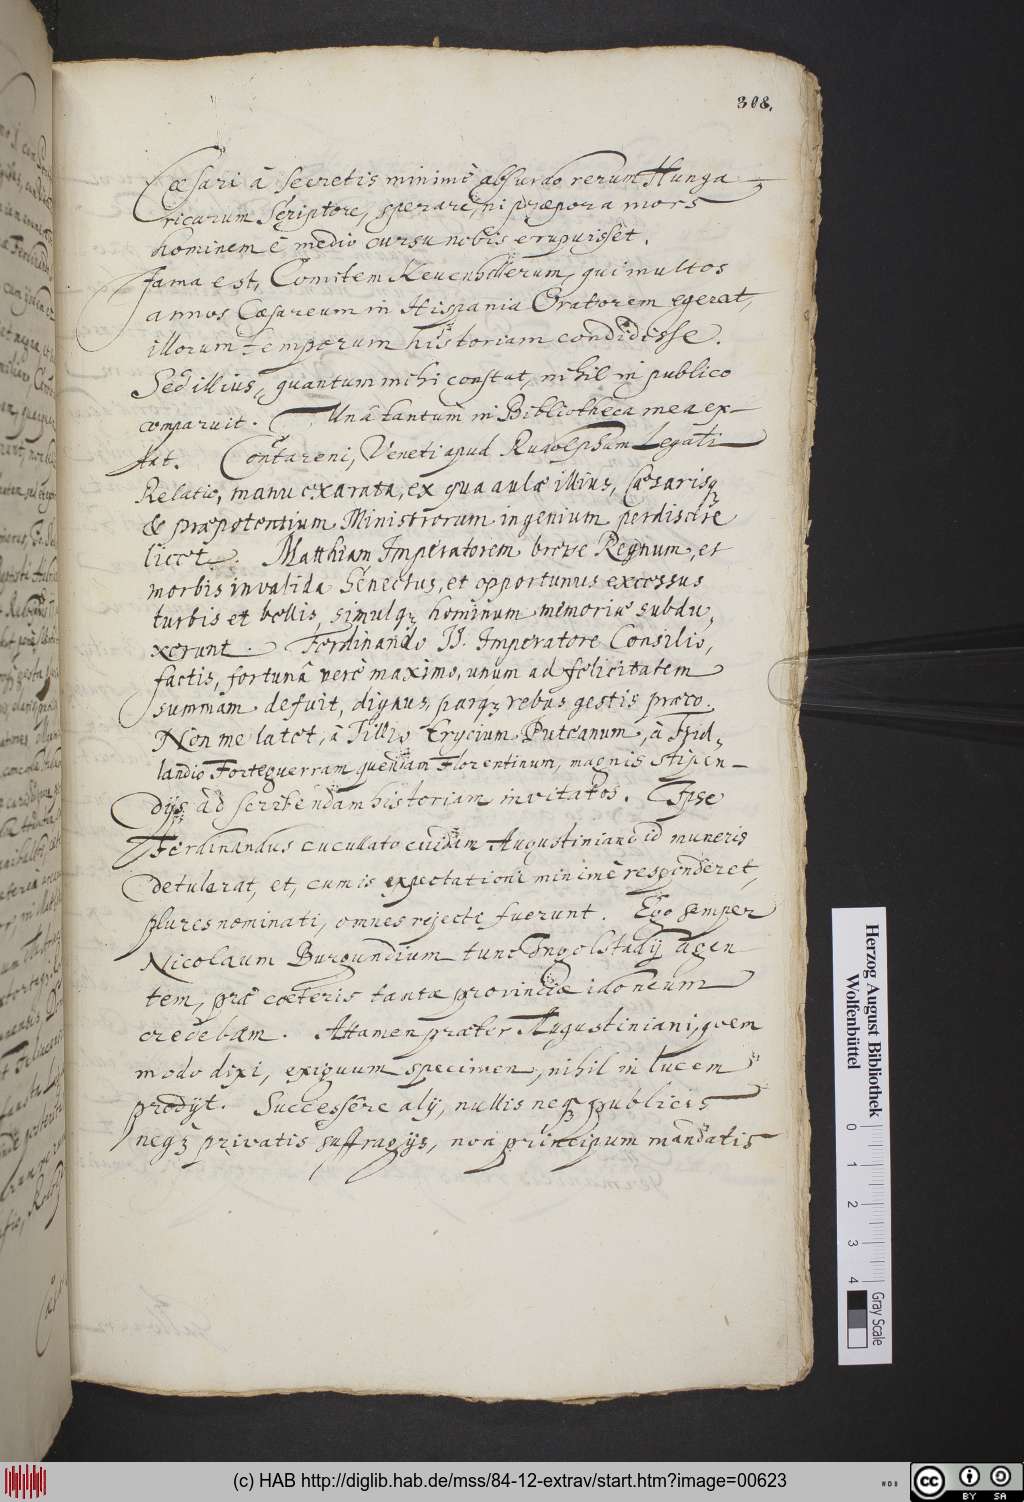 308.
Cæsari â secretis minimè absurdo rerum Hunga
ricarum Scriptore, sperare, ni præpora mors
hominem è medio cursu nobis eripuisset.
Fama est, Comitem Kevenhillerum, qui multos
annos Cæsareum in Hispania Oratorem egerat,
illorum temporum historiam condidisse.
Sed illius, quantum mihi constat, nihil in publico
comparuit. Unâ tantùm in Bibliotheca mea ex-
tat. Contareni, Veneti apud Rudolphum Legati
Relatio, manu exarata, ex qua aulæ illius, Cæsarisq
& præpotentium Ministrorum ingenium perdiscere
licet. Matthiam Imperatorem breve Regnum, et
morbis invalida Senectus, et opportunus excessus
turbis et bellis, simulq; hominum memoriæ subdu,
xerunt. Ferdinando II. Imperatore Consilio,
factis, fortunâ verè maximo, unum ad felicitatem
summam defuit, dignus, parq; rebus gestis præco.
Non me latet, â Tillio Erycium Puteanum, â Frid,
landio Forteguerram quendam Florentinum, magnis stipen-
dijs ad scribendam historiam invitatos. Ipse
Ferdinandus cucullato cuidam Augustiniano id muneris
detulerat, et, cum is expectationi minimè responderet,
plures nominati, omnes rejecte fuerunt. Ego semper
Nicolaum Burgundium tunc Ingolstadij agen
tem, præ cœteris tantæ provinciæ idoneum
credebam. Attamen præter Augustiniani, quem
modo dixi, exiguum specimen, nihil in lucem
prodijt. Successere alij, nullis neq; publicis
neq; privatis suffragijs, non principum mandatis
Herzog August Bibliothek
Wolfenbüttel
0 1 2 3 4
Gray Scale
(c) HAB http://diglib.hab.de/mss/84-12-extrav/start.htm?image=00623
CC BY SA